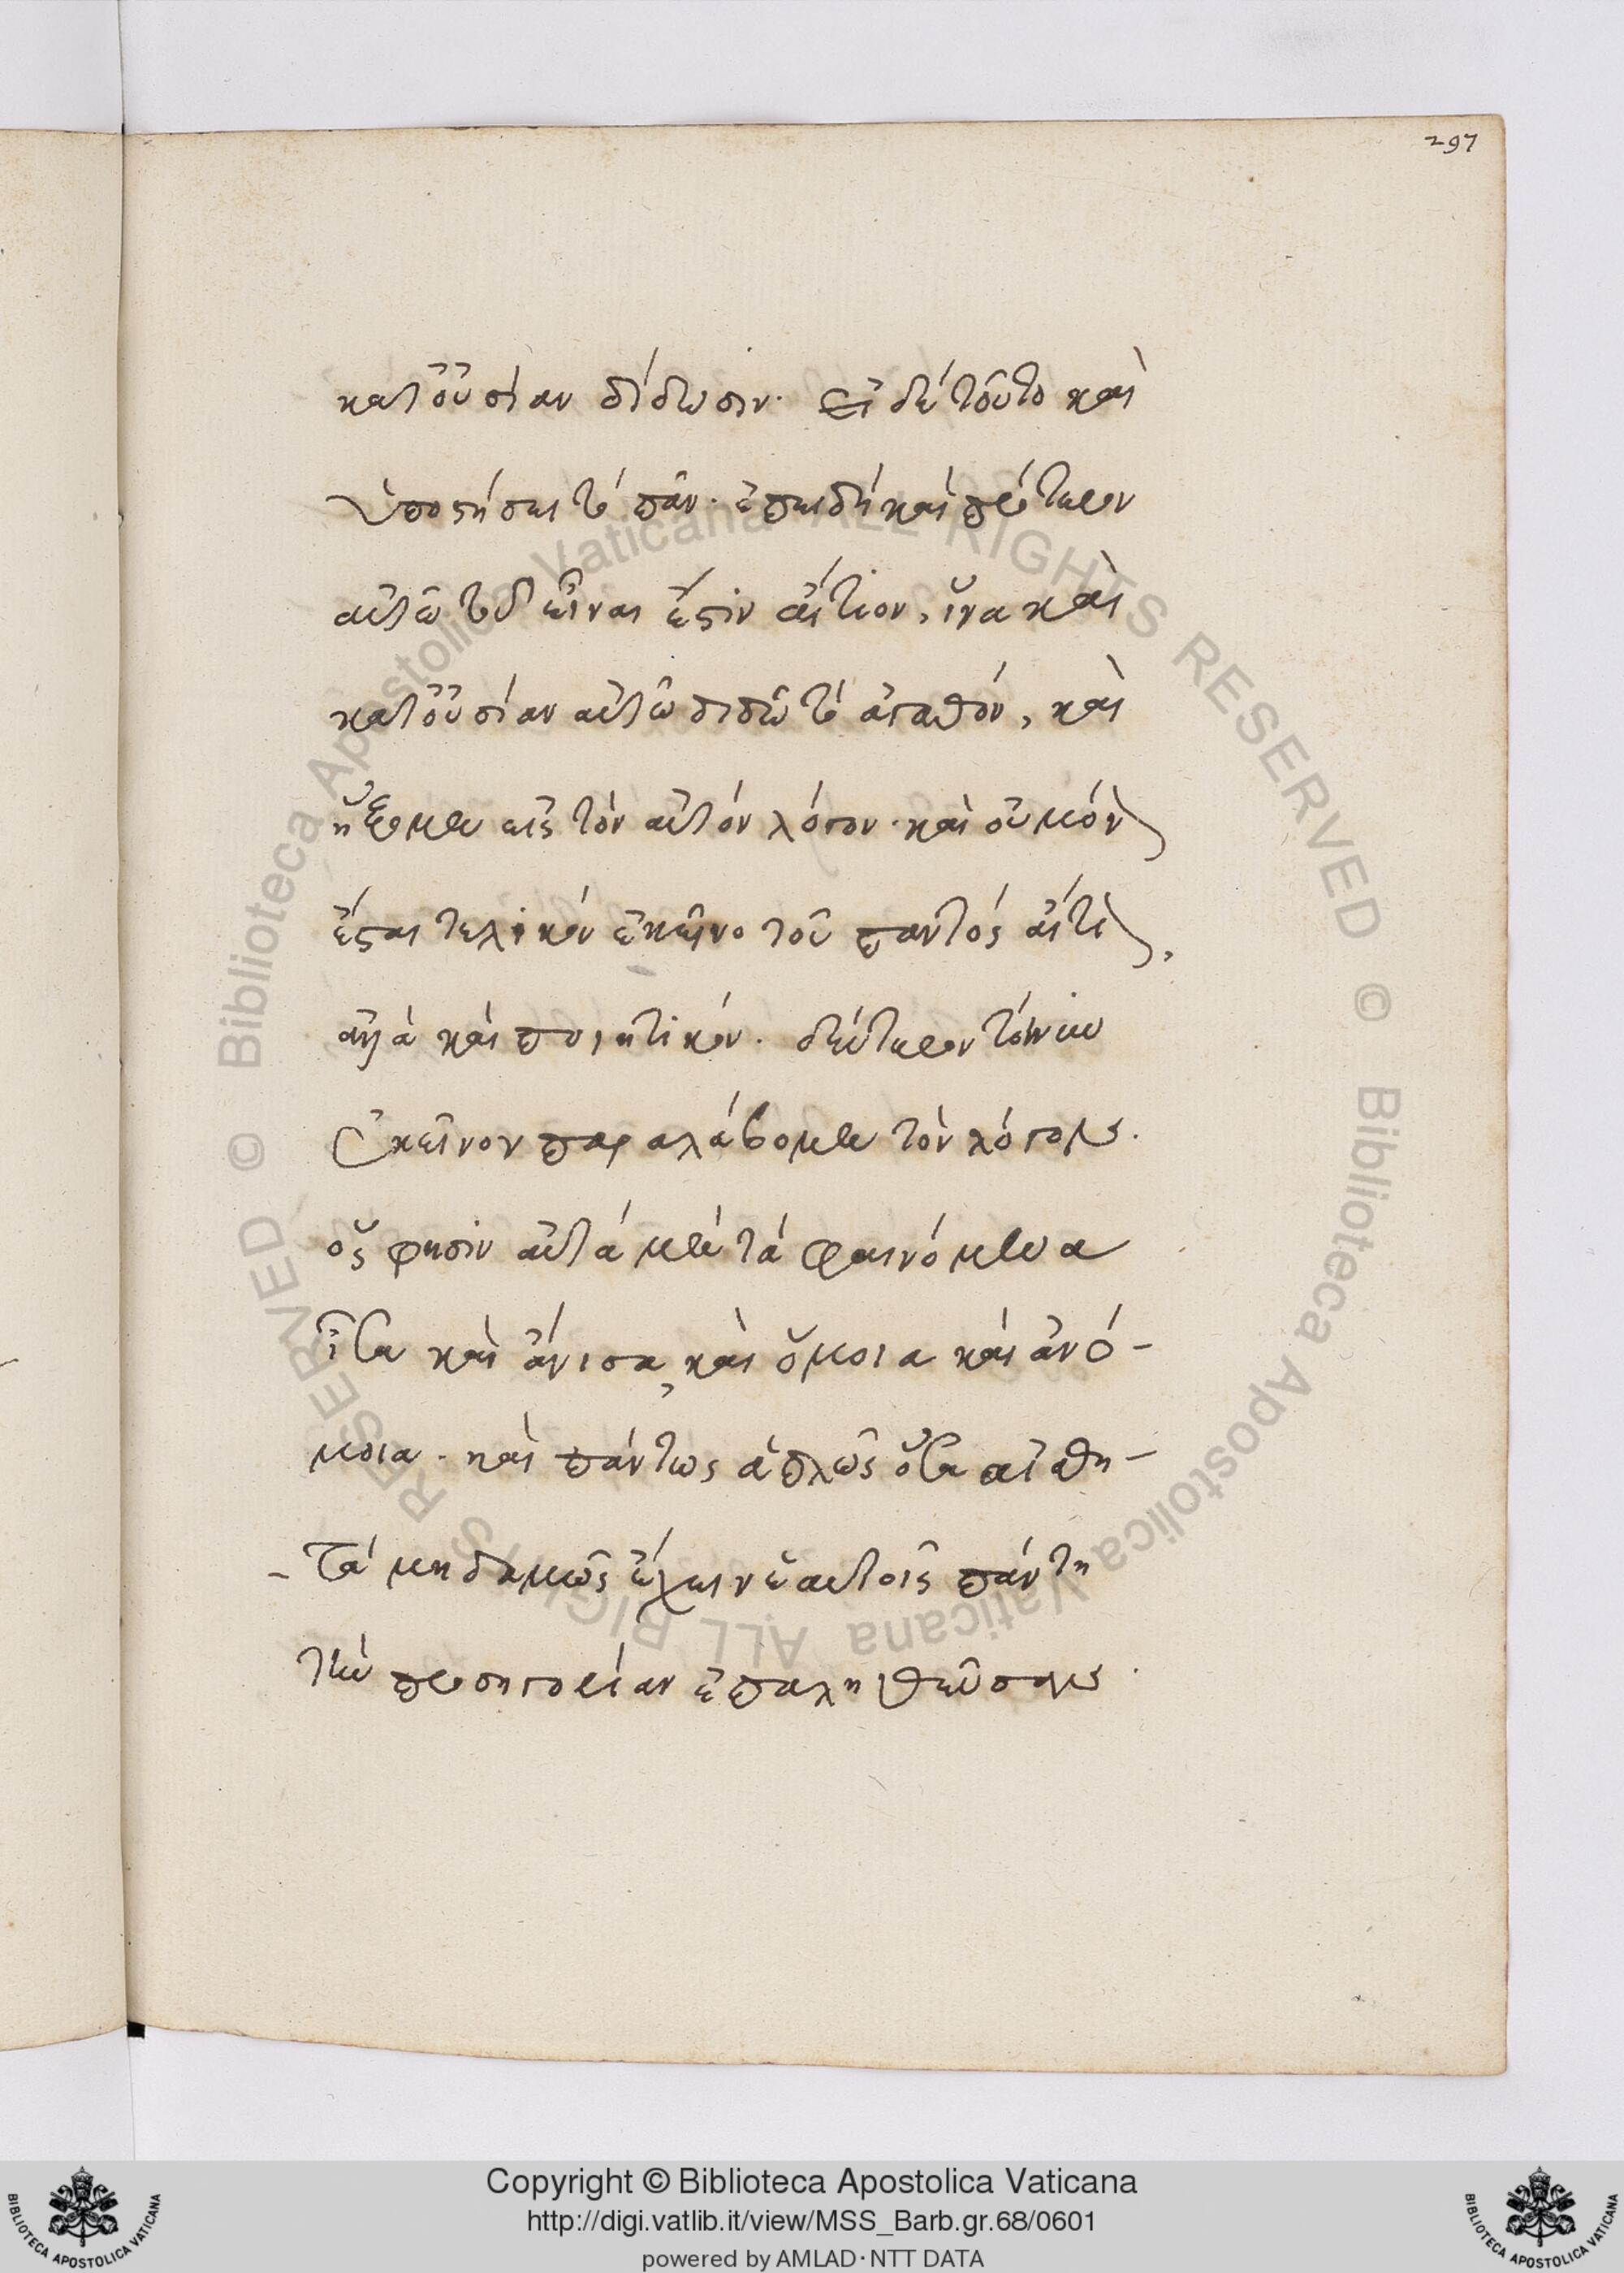 297
κατ' οὐσίαν δίδωσιν· εἰ δὲ τοῦτο καὶ
ὑποστήσει τὸ πᾶν· ἐπειδὴ καὶ πρότερον
αὐτῶ τοῦ εἶναι ἔστιν αἴτιον, ἵνα καὶ
κατ' οὐσίαν αὐτῶ διδῶ τὸ ἀγαθόν, καὶ
ἥξομεν εἰς τὸν αὐτὸν λόγον· καὶ οὐ μόνον
ἔσται τελικὸν ἐκεῖνο τοῦ παντὸς αἴτιον,
ἀλλὰ καὶ ποιητικόν. δεύτερον τοίνυν
ἐκεῖνον παραλάβομεν τὸν λόγον.
ὅς φησιν αὐτὰ μὲν τὰ φαινόμενα
ἶσα καὶ ἄνισα, καὶ ὅμοια καὶ ἀνό-
μοια· καὶ πάντως ἁπλῶς ὅσα αἰσθη-
-τὰ μηδαμῶς ἔχειν ἑαυτοῖς πάντη
τὴν προσηγορίαν ἐπαληθεύσαν.
Copyright © Biblioteca Apostolica Vaticana
http://digi.vatlib.it/view/MSS_Barb.gr.68/0601
powered by AMLAD·NTT DATA
BIBLIOTECA APOSTOLICA VATICANA
BIBLIOTECA APOSTOLICA VATICANA
© Biblioteca Apostolica Vaticana ALL RIGHTS RESERVED © Biblioteca Apostolica Vaticana ALL RIGHTS RESERVED